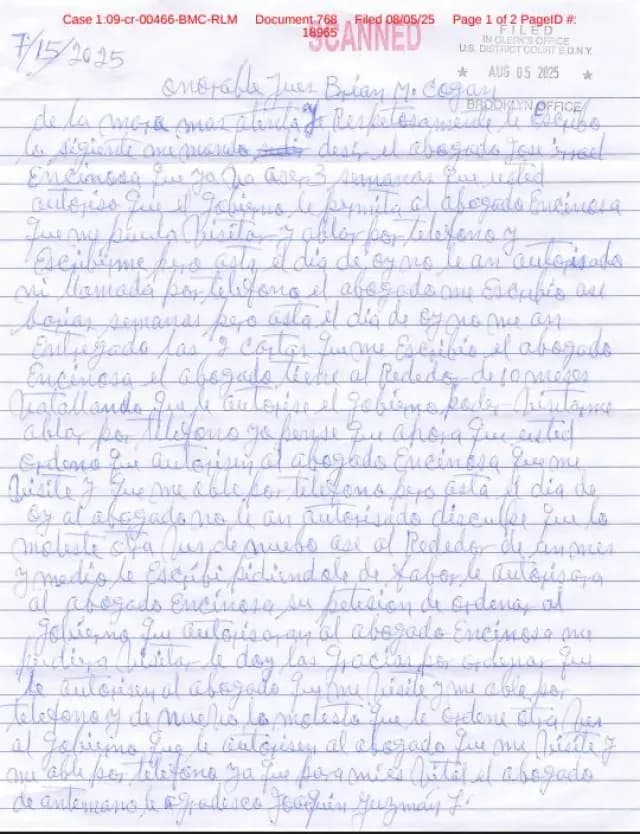 Case 1:09-cr-00466-BMC-RLM Document 768 Filed 08/05/25 Page 1 of 2 PageID #: 18965
SCANNED
FILED
IN CLERK'S OFFICE
U.S. DISTRICT COURT E.D.N.Y.
★ AUG 05 2025 ★
BROOKLYN OFFICE
7/15/2025
onorable Jues Brian M. Cogan
de la mara mas atenta y Respetosamente le escribo
lo sigiente me mando desir el abogado Jose Israel
Encinosa que ya va aser 3 semanas que usted
autoriso que el gobierno le permita al abogado Encinosa
que me pueda Visitar y ablar por telefono y
Escribirme pero asta el dia de oy no le an autorisado
ni llamada por telefono el abogado me Escribio ase
barias semanas pero asta el dia de oy no me an
Entregado las 2 cartas que me Escribio el abogado
Encinosa el abogado tiene al Rededor de 10 meses
batallando que le autorise el gobierno poder Visitarme
ablar por telefono yo pense que ahora que usted
ordeno que autorisen al abogado Encinosa que me
Visite y que me able por telefono pero asta el dia de
oy al abogado no le an autorisado disculpe que lo
moleste otra Ves de nuebo ase al Rededor de un mes
y medio le Escribi pidiendole de fabor le autorisara
al abogado Encinosa su petision de ordenar al
gobierno que autorisaran al abogado Encinosa me
pudiera Visitar le doy las gracias por ordenar que
le autorisen al abogado que me Visite y me able por
telefono y de nuebo lo molesto que le ordene otra Ves
al gobierno que le autorisen al abogado que me Visite y
me able por telefono ya que para mi es Vital el abogado
de antemano le agradesco Joaquin Guzmán L.